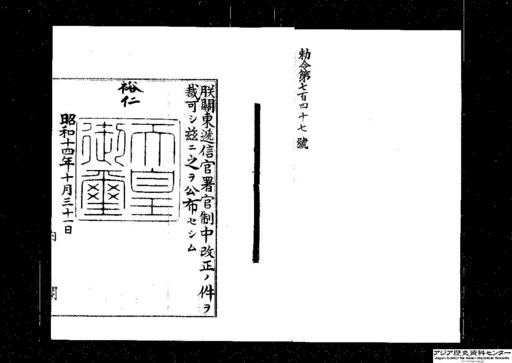 勅令第七百四十七號
朕關東遞信官署官制中改正ノ件ヲ
裁可シ茲ニ之ヲ公布セシム
裕仁
天皇
御璽
昭和十四年十月三十一日
内閣
アジア歴史資料センター
Japan Center for Asian Historical Records